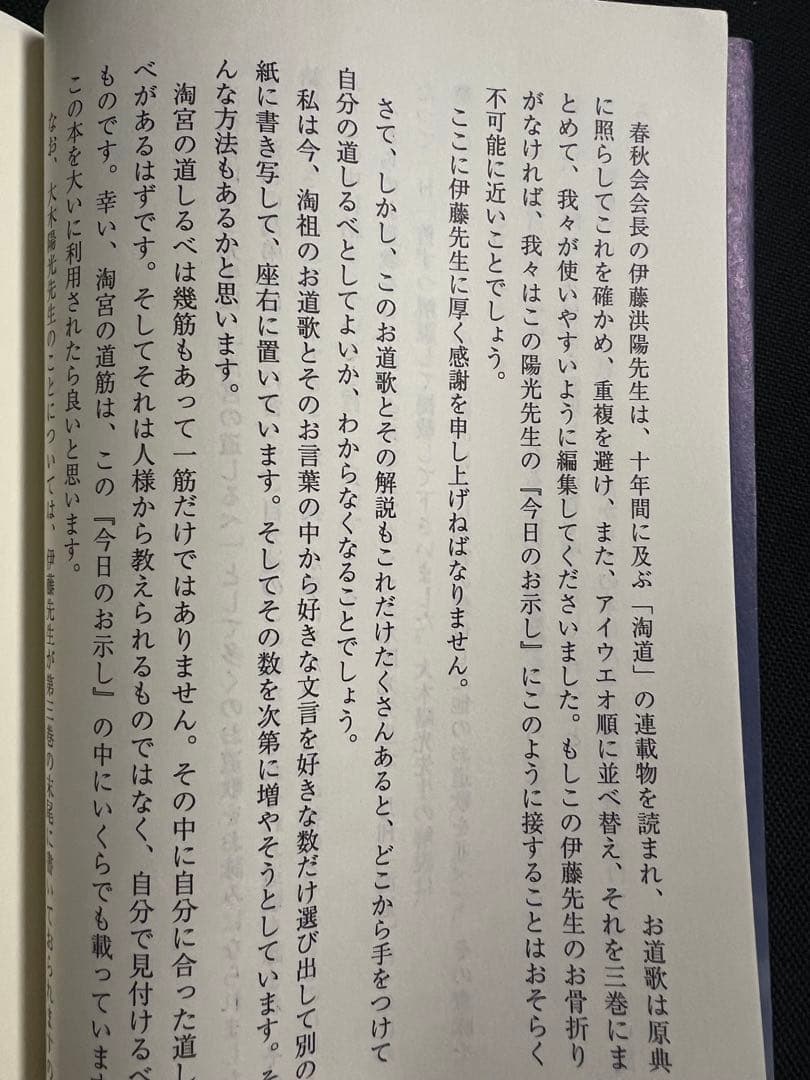 春秋会会長の伊藤洪陽先生は、十年間に及ぶ「淘道」の連載物を読まれ、お道歌は原典
に照らしてこれを確かめ、重複を避け、また、アイウエオ順に並べ替え、それを三巻にま
とめて、我々が使いやすいように編集してくださいました。もしこの伊藤先生のお骨折り
がなければ、我々はこの陽光先生の『今日のお示し』にこのように接することはおそらく
不可能に近いことでしょう。
ここに伊藤先生に厚く感謝を申し上げねばなりません。
さて、しかし、このお道歌とその解説もこれだけたくさんあると、どこから手をつけて
自分の道しるべとしてよいか、わからなくなることでしょう。
私は今、淘祖のお道歌とそのお言葉の中から好きな文言を好きな数だけ選び出して別の
紙に書き写して、座右に置いています。そしてその数を次第に増やそうとしています。そ
んな方法もあるかと思います。
淘宮の道しるべは幾筋もあって一筋だけではありません。その中に自分に合った道し
べがあるはずです。そしてそれは人様から教えられるものではなく、自分で見付けるべ
ものです。幸い、淘宮の道筋は、この『今日のお示し』の中にいくらでも載っていま
この本を大いに利用されたら良いと思います。
なお、大木陽光先生のことについては、伊藤先生が第三巻の末尾に書いておられますの